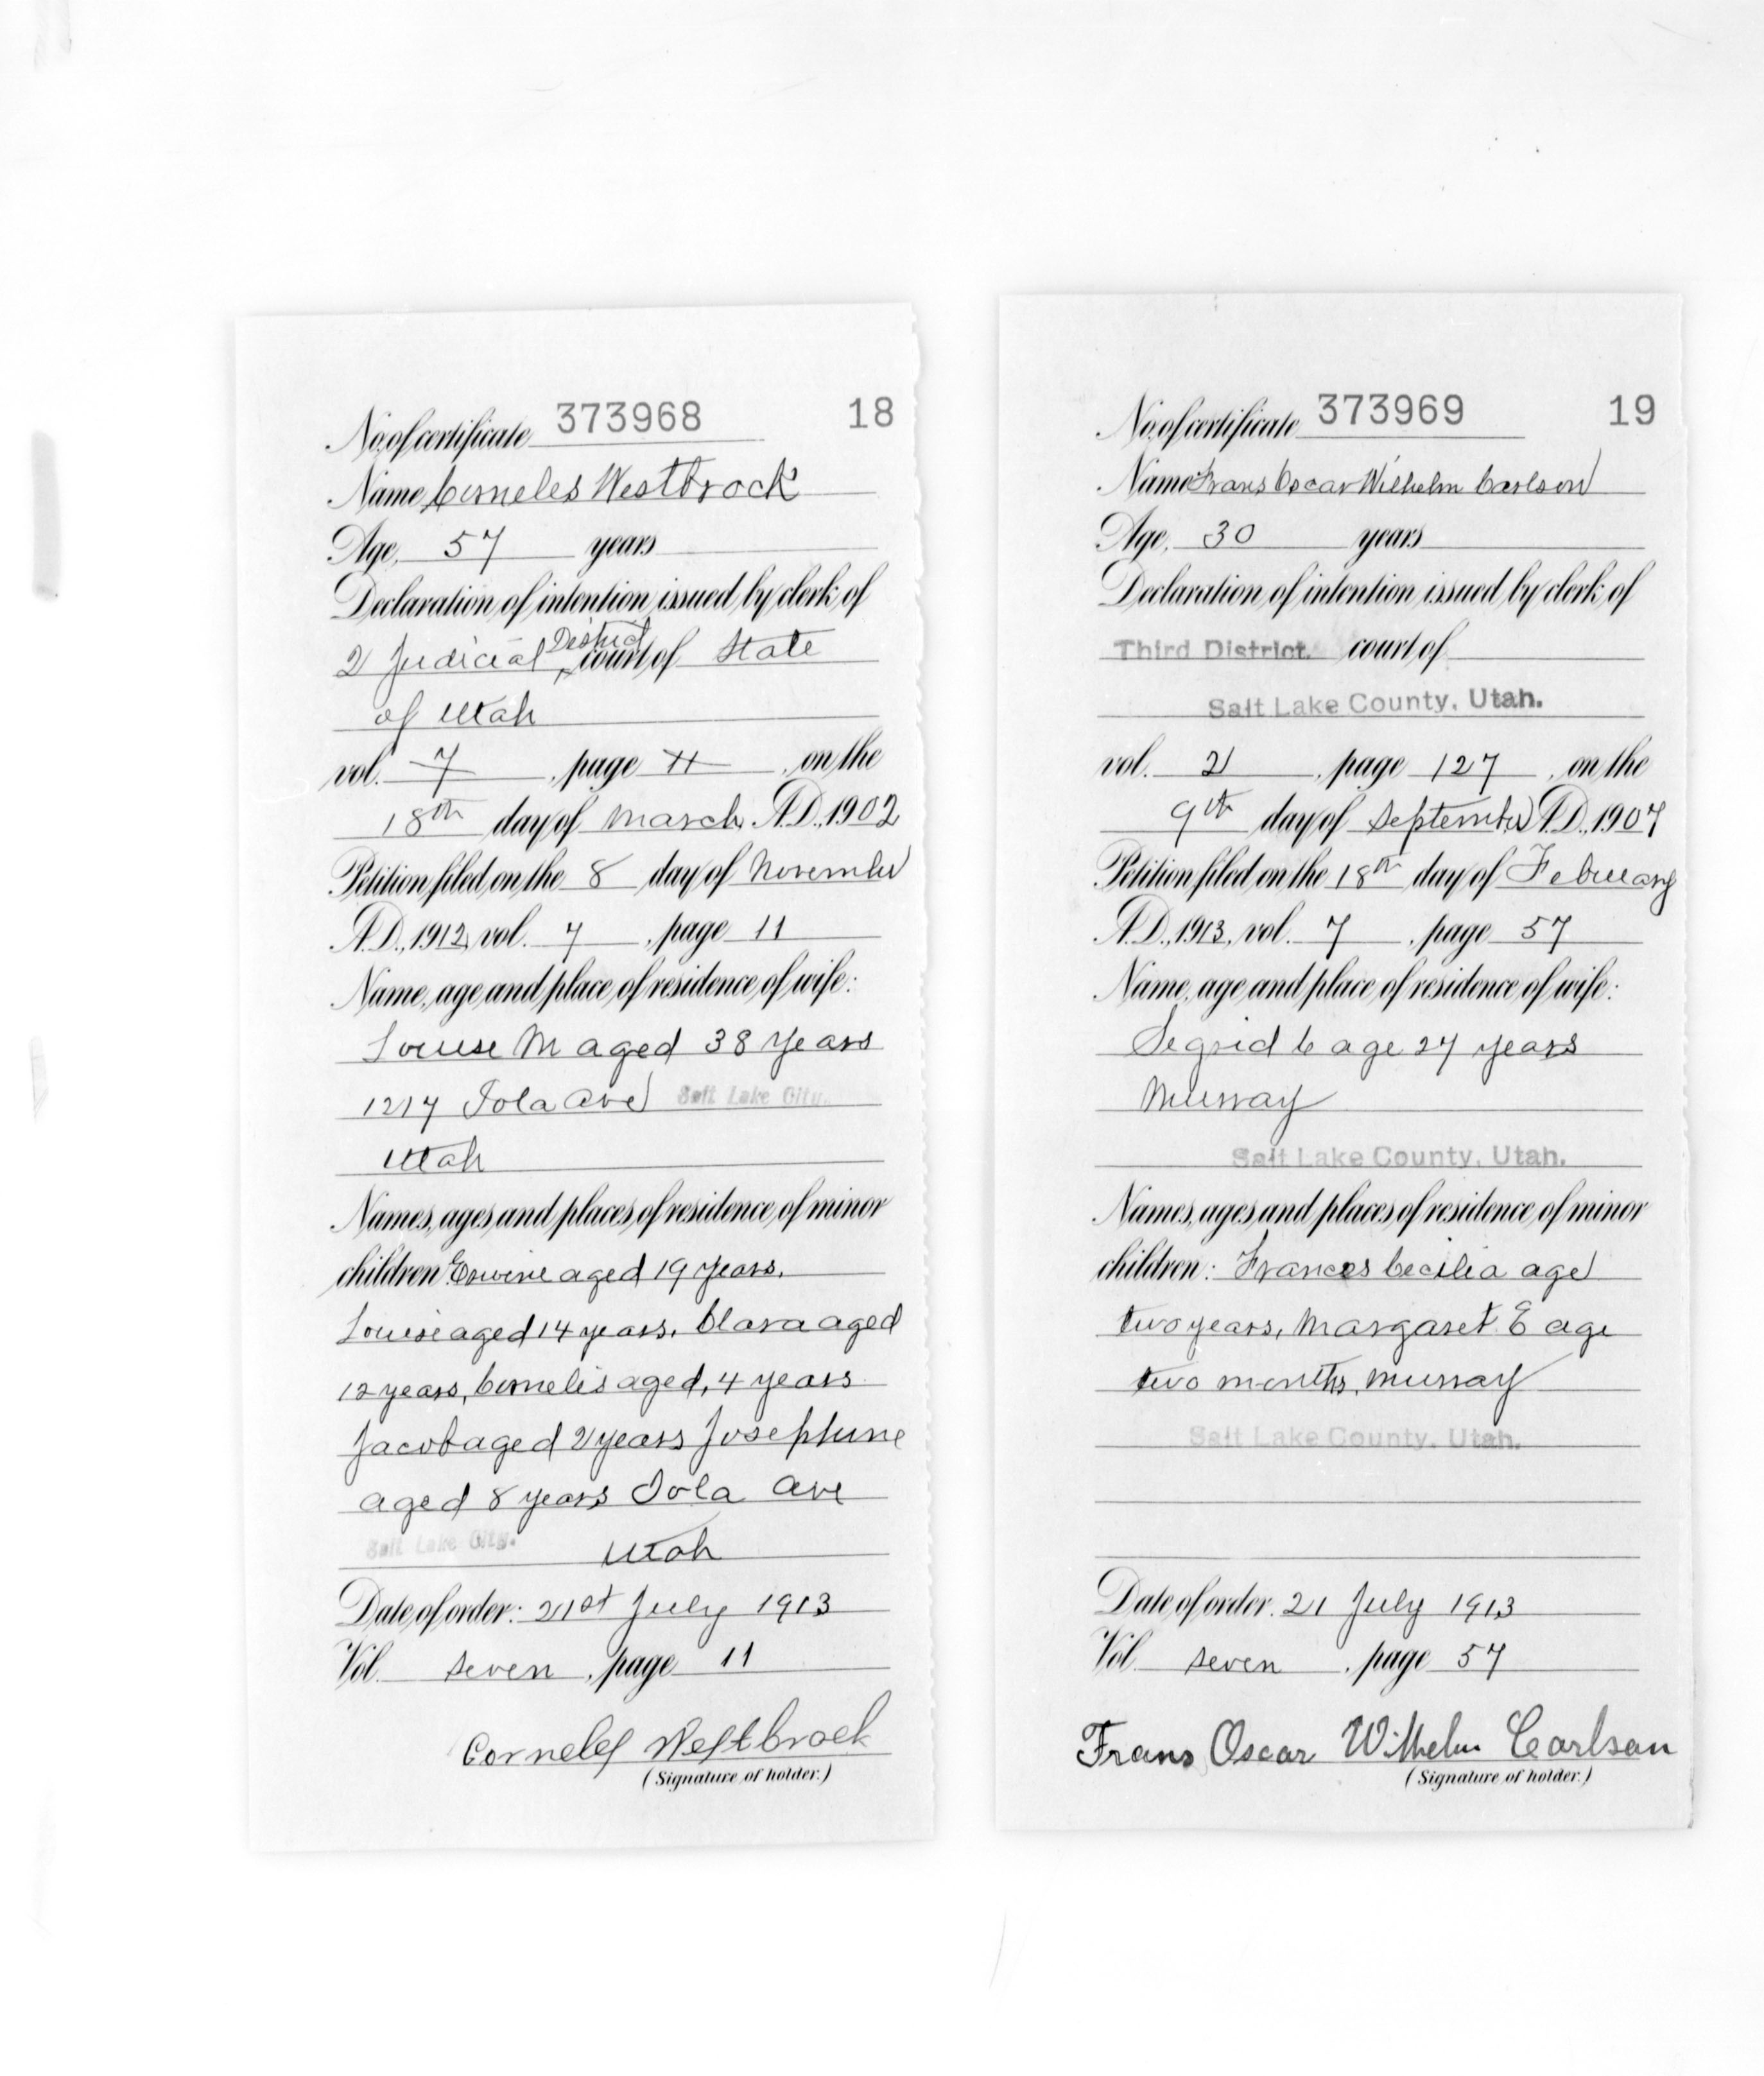 No. of certificate 373968 18
Name Corneles Westbrock
Age, 57 years
Declaration of intention issued by clerk of
2 Judicial District court of State
of Utah
vol. 7, page 11, on the
18th day of March A.D., 1902
Petition filed on the 8 day of November
A.D., 1912, vol. 7, page 11
Name, age and place of residence of wife:
Louise M aged 38 years
1217 Iola Ave Salt Lake City.
Utah
Names, ages and places of residence of minor
children aged 19 years.
Louise aged 14 years. Clara aged
12 years, Cornelis aged, 4 years
Jacob aged 2 years Josephine
aged 8 years Iola Ave
Salt Lake City. Utah
Date of order: 21st July 1913
Vol. seven, page 11
Corneles Westbroek
(Signature of holder.)
No. of certificate 373969 19
Name Frans Oscar Wilhelm Carlson
Age, 30 years
Declaration of intention issued by clerk of
Third District. court of
Salt Lake County, Utah.
vol. 2, page 127, on the
9th day of September A.D., 1907
Petition filed on the 18th day of February
A.D., 1913, vol. 7, page 57
Name, age and place of residence of wife:
Segrid C age 27 years
Murray
Salt Lake County, Utah.
Names, ages and places of residence of minor
children: Frances Cecilia age
two years, Margaret E age
two months, Murray
Salt Lake County, Utah.
Date of order: 21 July 1913
Vol. seven, page 57
Frans Oscar Wilhelm Carlson
(Signature of holder.)